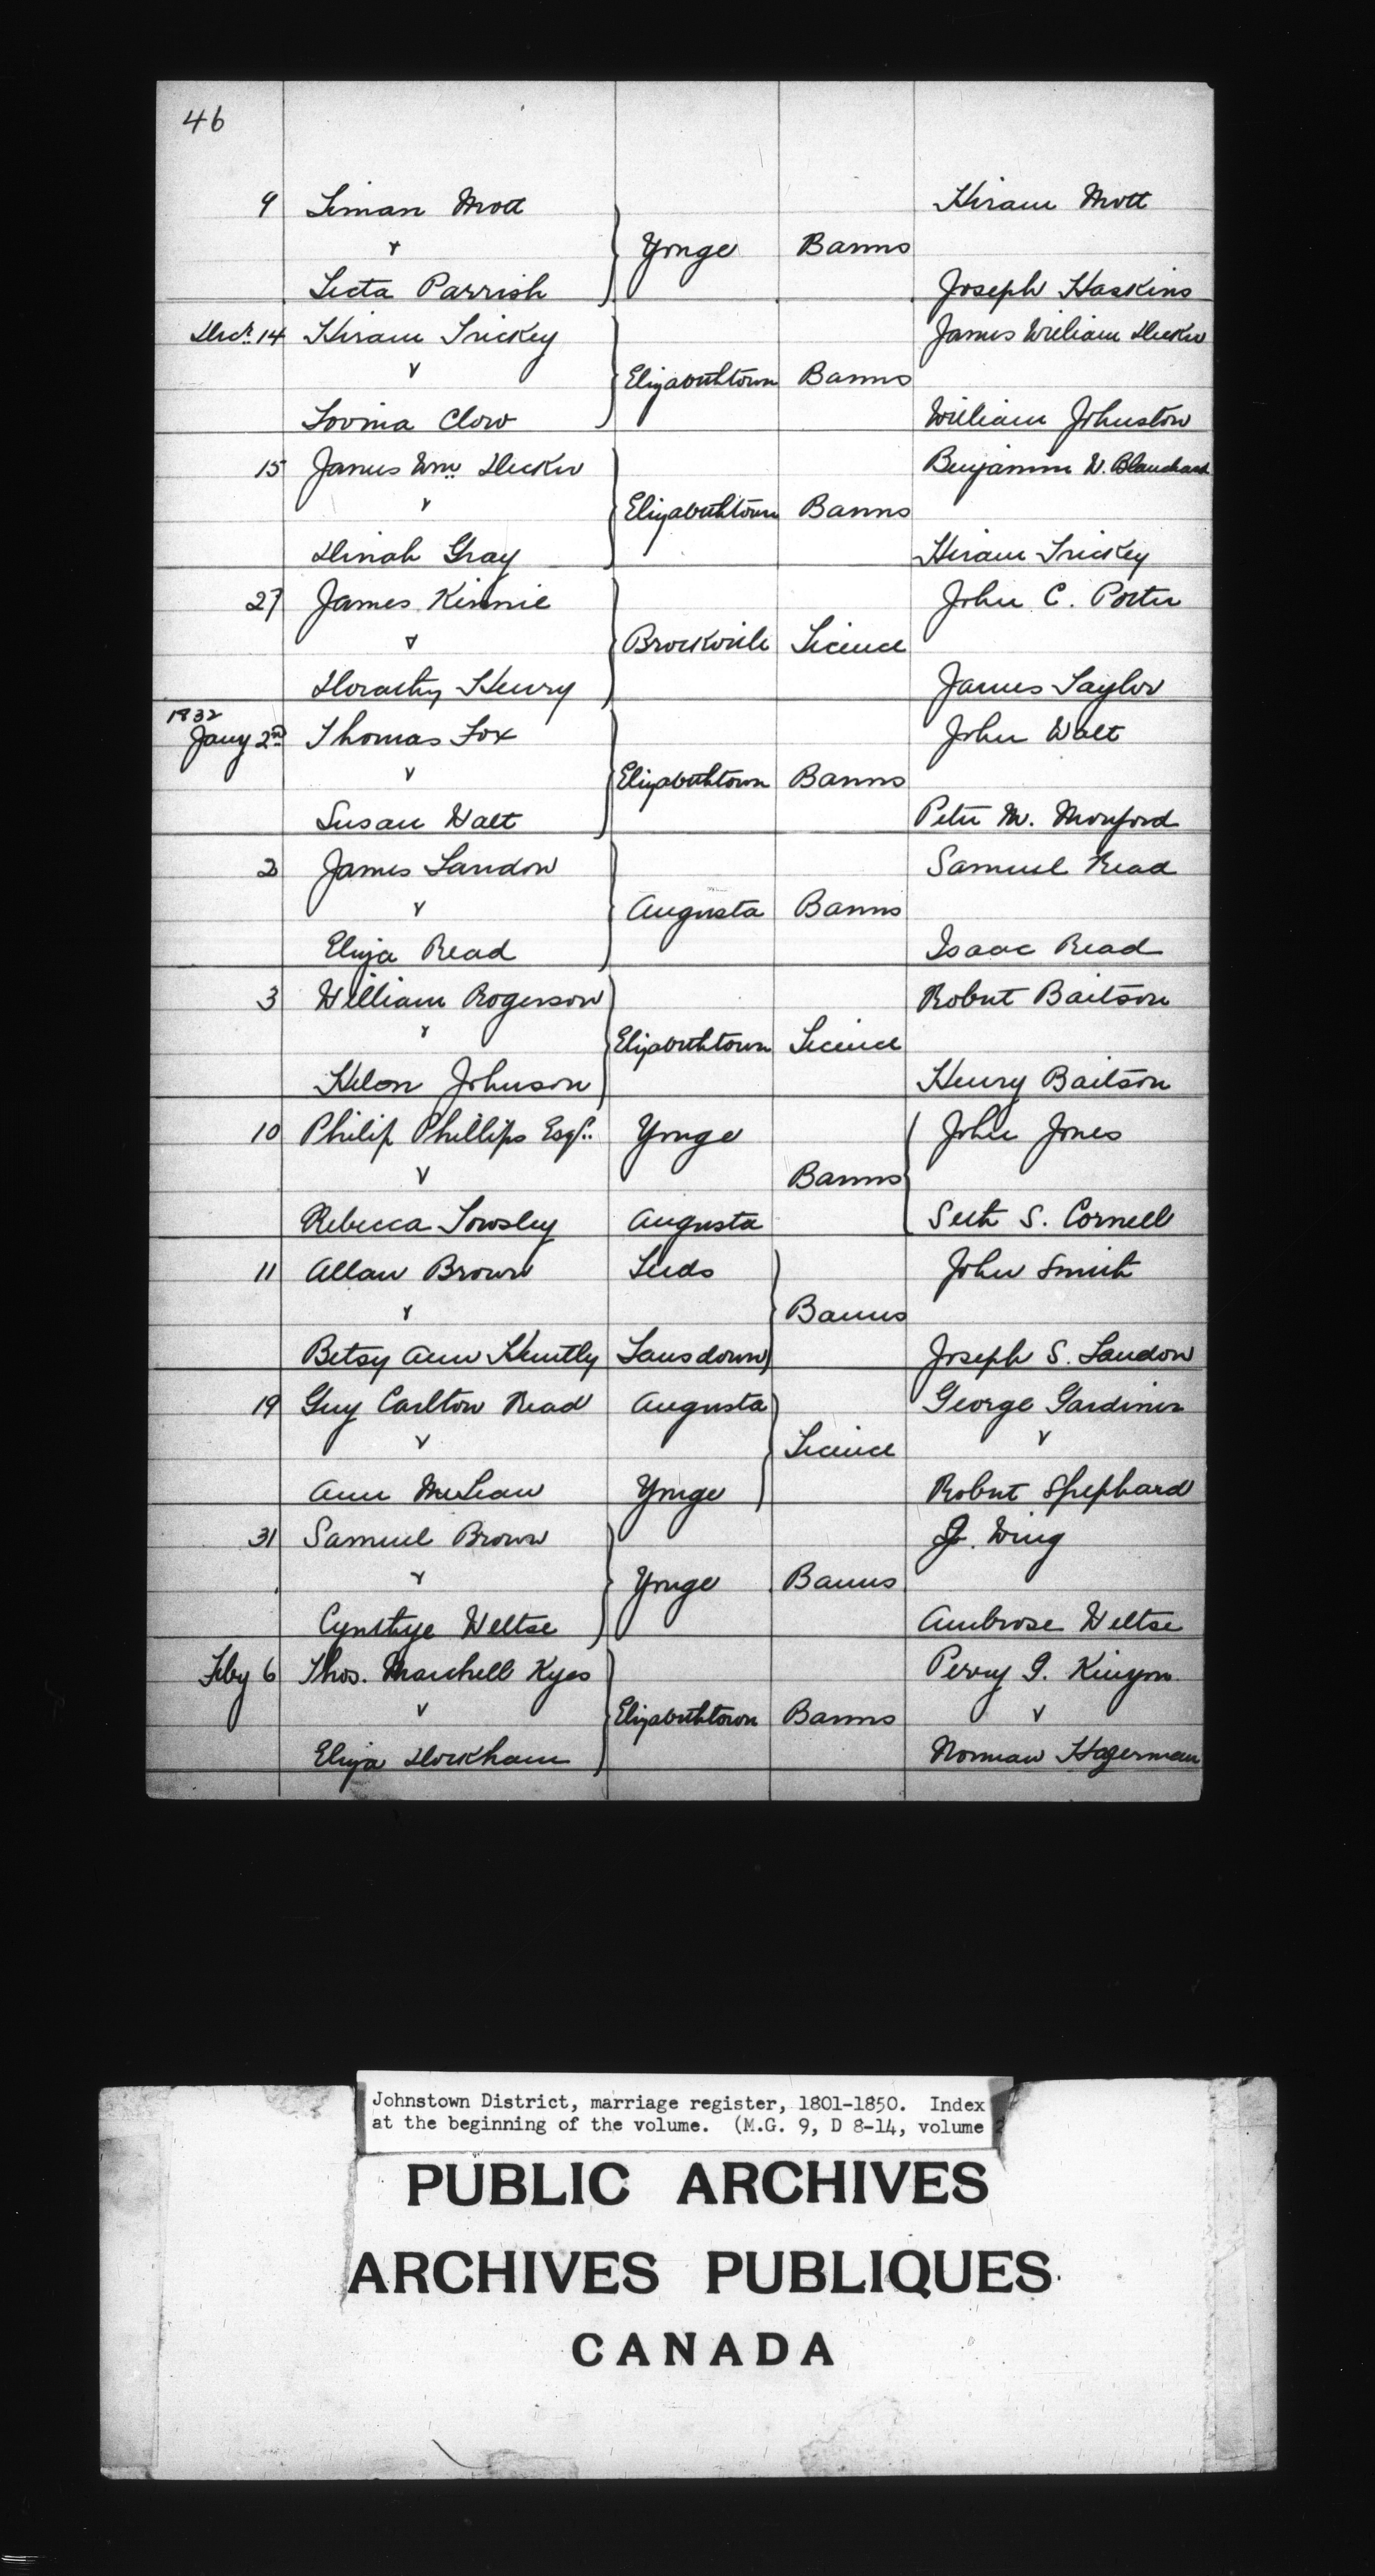 46
9 Liman Mott Hiram Mott
& Yonge Banns
Lecta Parrish Joseph Haskins
Decr. 14 Hiram Trickey James William Decker
& Elizabethtown Banns
Lovina Clow William Johnston
15 James Wm. Decker Benjamin W. Blanchard
& Elizabethtown Banns
Dinah Gray Hiram Trickey
27 James Kinnie John C. Porter
& Brockville Licence
Dorathy Henry James Taylor
1832
Jany 2nd Thomas Fox John Walt
& Elizabethtown Banns
Susan Walt Peter M. Monford
2 James Landon Samuel Read
& Augusta Banns
Eliza Read Isaac Read
3 William Rogerson Robert Baitson
& Elizabethtown Licence
Helen Johnson Henry Baitson
10 Philip Phillips Esqr. Yonge John Jones
& Banns
Rebecca Towsley Augusta Seth S. Cornell
11 Allan Brown Leeds John Smith
& Banns
Betsy Ann Huntly Lansdown Joseph S. Landon
19 Guy Carlton Read Augusta George Gardiner
& Licence &
Ann McLean Yonge Robert Shephard
31 Samuel Brown J. Wing
& Yonge Banns
Cynthye Weltse Ambrose Weltse
Feby 6 Thos. Marshell Kyes Perry G. Kinyon
& Elizabethtown Banns &
Eliza Dockham Norman Hagerman
Johnstown District, marriage register, 1801-1850. Index
at the beginning of the volume. (M.G. 9, D 8-14, volume 2
PUBLIC ARCHIVES
ARCHIVES PUBLIQUES
CANADA